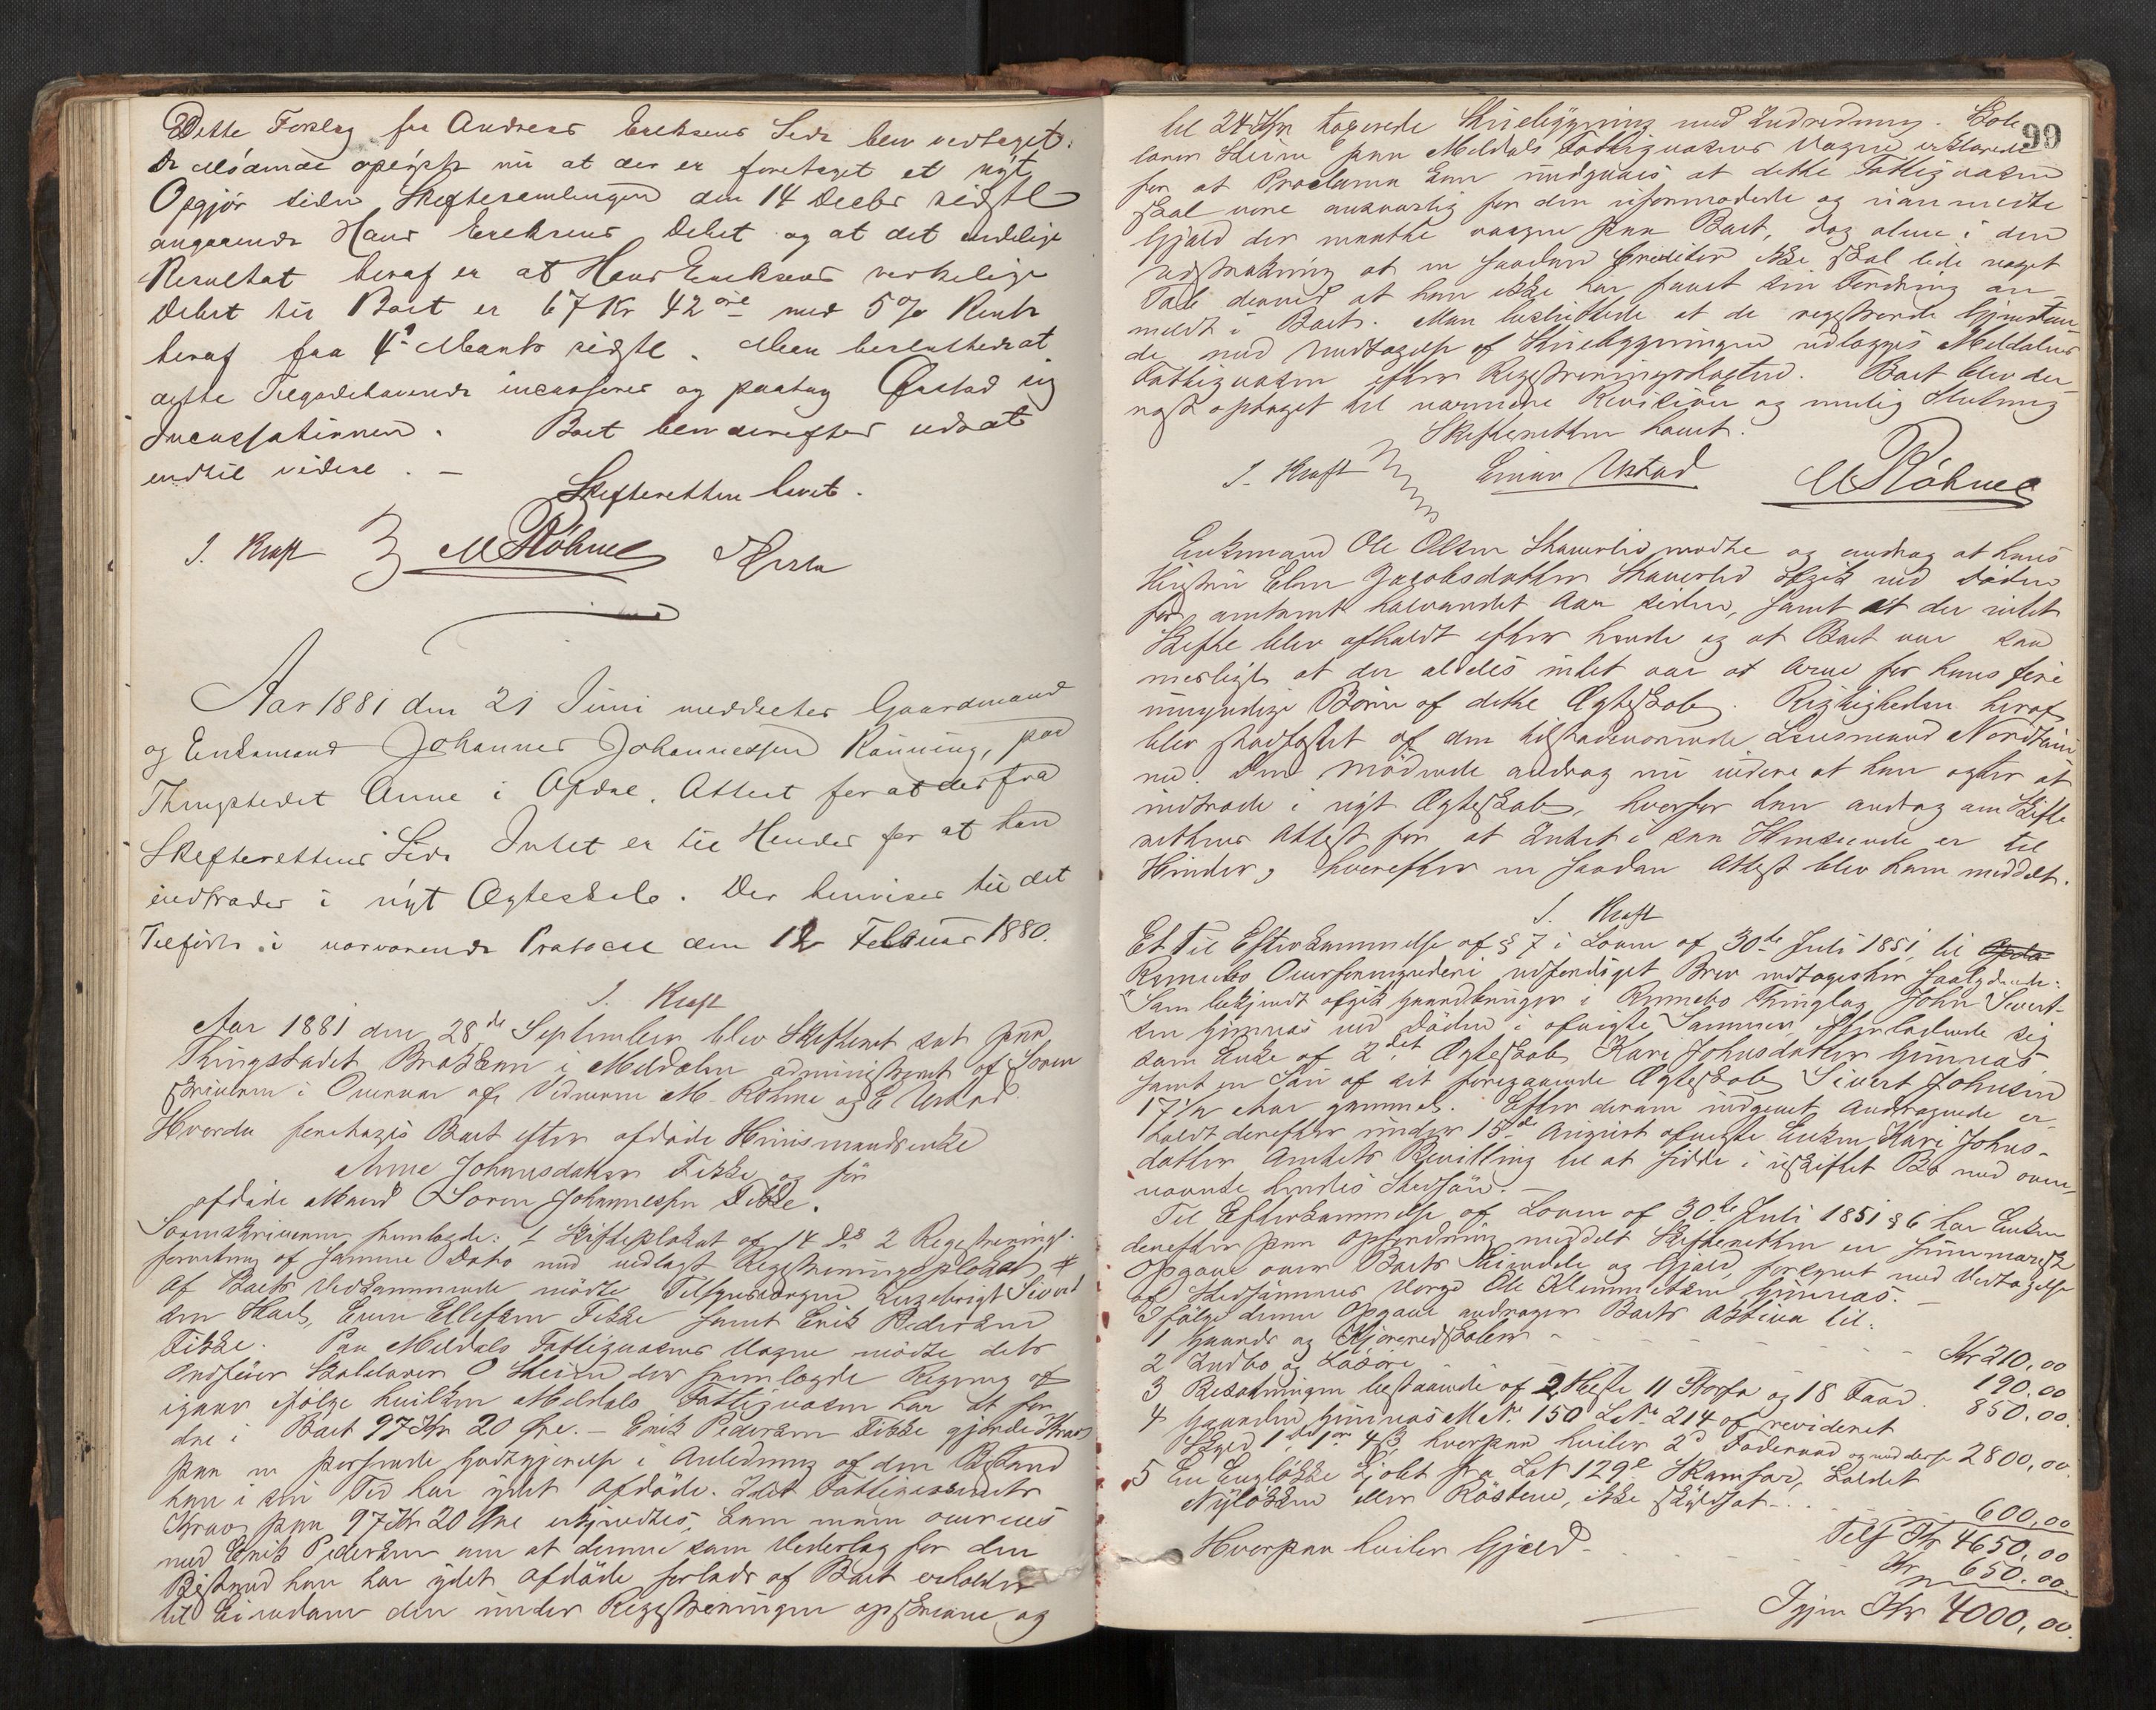 Dette Forslag fra Andreas Eriksens Side blev vedtaget.
De Mödende oplyste nu at der er foretaget et nyt
Opgjör siden Skiftesamlingen den 14 Decbr sidstl
angaaende Hans Eriksens Debet og at det endelige
Resultat heraf er at Hans Eriksens virkelige
Debet til Boet er 67 Kr 42 öre med 5 % Rente
heraf fra 4de Marts sidstl. Man besluttede at
dette Tilgodehavende incasseres og paatog Ørstad sig
Incassationen. Boet blev derefter udsat
indtil videre. —
Skifteretten hævet.
J. Kraft M Röhme
Aar 1881 den 21 Juni meddeltes Gaardmand
og Enkemand Johannes Johannessen Rönning, paa
Thingstedet Aune i Opdal, Attest for at der fra
Skifterettens Side Intet er til Hinder for at han
indtræder i nyt Ægteskab. Der henvises til det
Tilförte i nærværende Protocol den 12 Februar 1880.
J. Kraft
Aar 1881 den 28de September blev Skifteret sat paa
Thingstedet Brækken i Meldalen administreret af Soren
skriveren i Overvær af Vidnerne M. Röhme og E Ustad.
Hvorda foretages Boet efter afdöde Huusmandsenke
Anne Johnsdatter Fikke og för
afdöde Mand Soren Johannessen Fikke.
Sorenskriveren fremlagde: 1 Skifteplakat af 14 ds 2 Registrerings-
forretning af samme Dato med vedlagt Registreringsplakat #
Af Boets Vedkommende mödte Tilsynsværgen Ingebrigt Sivert
sen Hoel, Even Ellefsen Fikke samt Erik Pedersen
Fikke. Paa Meldals Fattigvæsens Vegne mödte dets
Ordförer Skolelærer O Skeim der fremlagde Regning af
igaar ifölge hvilken Meldals Fattigvæsen har at for
dre i Boet 97 Kr 20 Öre. — Erik Pedersen Fikke gjorde Krav
paa en passende Godtgjörelse i Anledning af den Bistand
han i sin Tid har ydet Afdöde. Idet Fattigvæsenets
Krav paa 97 Kr 20 Öre erkjendtes, kom man overens
med Erik Pedersen om at denne som Vederlag for den
Bistand han har ydet Afdöde forlods af Boet erholder
til Eiendom den under Registreringen opskrevne og
99
til 24 Kr taxerede Huusbygning med Indredning. Skole
lærer Skeim paa Meldals Fattigvæsens Vegne erklærede
for at Proclama kan undgaaes at dette Fattigvæsen
skal være ansvarlig for den uformodede og uanmeldte
Gjæld der maatte være paa Boet, dog alene i den
Udstrækning at en saadan Creditor ikke skal lide noget
Tab derved at han ikke har faaet sin Fordring an-
meldt i Boet. Man besluttede at de registrerede Gjenstan-
de med Undtagelse af Huusbygningen udlægges Meldalens
Fattigvæsen efter Registreringstaxten. Boet blev der-
næst optaget til nærmere Revision og mulig Slutning
Skifteretten hævet.
J. Kraft Einar Ustad M Röhme
Enkemand Ole Olsen Skaverlid mødte og androg at hans
Hustru Elen Jacobsdatter Skaverlid afgik ved Döden
for omtrent halvandet Aar siden, samt at der intet
Skifte blev afholdt efter hende og at Boet var saa
mærligt at der aldeles intet var at arve for hans fire
umyndige Börn af dette Ægteskab. Rigtigheden heraf
blev stadfæstet af den tilstedeværende Lensmand
. Den Mödende androg nu videre at han agter at
indtræde i nyt Ægteskab, hvorfor han androg om Skifte
rettens Attest for at Intet i saa Henseende er til
Hinder, hvorefter en saadan Attest blev ham meddelt.
J. Kraft
Et til Efterkommelse af § 7 i Loven af 30te Juli 1851, til Opda
Rennebo Overformynderi udfærdiget Brev indtages her saalydende:
"Som bekjendt afgik Gaardbruger i Rennebo Thinglag John Sivert-
sen Gunnæs ved Döden i afvigte Sommer efterladende sig
som Enke af 2det Ægteskab Kari Johnsdatter Gunnæs
samt en Sön af sit foregaaende Ægteskab Sivert Johnsen
17 1/2 Aar gammel. Efter derom indgivet Andragende er-
holdt derefter under 15de August afvigte Enken Kari Johns-
datter Amtets Bevilling til at sidde i uskiftet Bo med oven-
nævnte hendes Stedsön. —
Til Efterkommelse af Loven af 30te Juli 1851 § 6 har Enken
derefter paa Opfordring meddelt Skifteretten en summarisk
Opgave over Boets Eiendele og Gjæld, forsynet med Vedtagelse
af Stedsönnens Verge Ole Gunnæs. —
Ifölge denne Opgave andrager Boets Aktiva til:
1 Gaards og Kjöreredskaber - - - - - - - Kr 210,00
2 Indbo og Lösöre - - - - - 190,00
3 Besætningen bestaaende af 2 Heste 11 Storfæ og 18 Faar. 850,00
4 Gaarden Gunnæs M Nr 150 L Nr 214 af revideret
Skyld 1 d 1 ort 4 ß, hvorpaa hviler 2de Föderaad og med derfor 2800,00.
5 En Engløkke skjölet fra L Nr 129e Skamfar, kaldet
Nylökken eller Röstene, ikke skyldsat - . . - - - - 600,00
Tils Kr 4650,00
Hvorpaa hviler Gjæld - - - - - - - Kr 650.00.
Igjen Kr 4000,00.